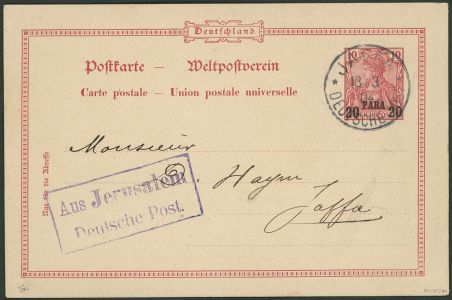 Deutschland
Postkarte — Weltpostverein
Carte postale — Union postale universelle
10 10
20 PARA 20
13 3
DEUTSCHE
Monsieur
Haym
Jaffa
Nur für die Adresse
Aus Jerusalem
Deutsche Post.